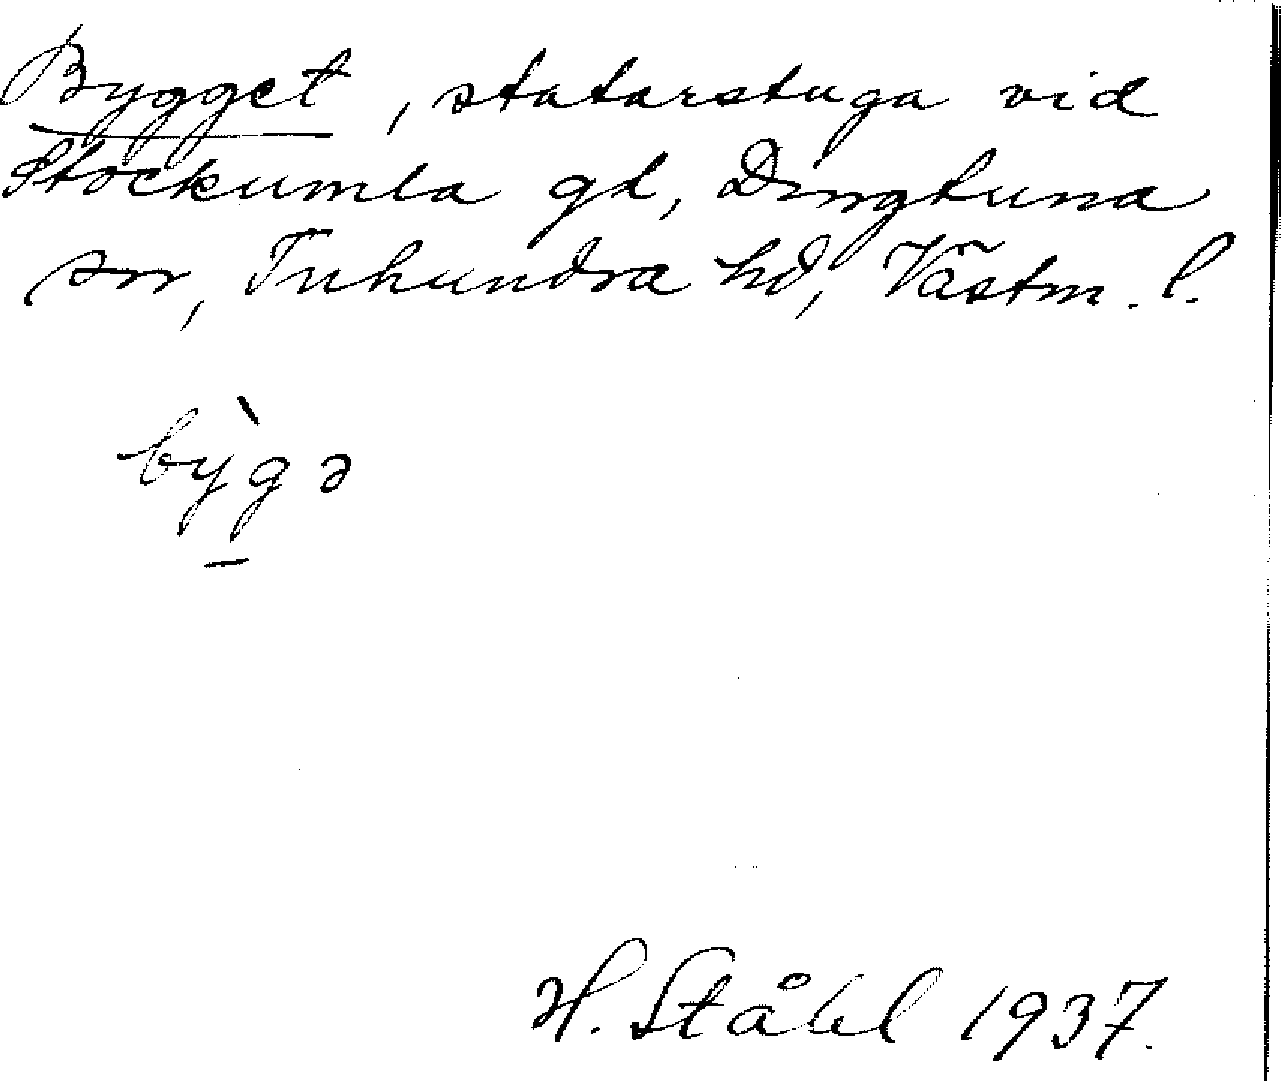 Bygget, statarstuga vid
Stockumla gd, Dingtuna
sn, Tuhundra hd, Västm. l.
bỳgə
H. Ståhl 1937.